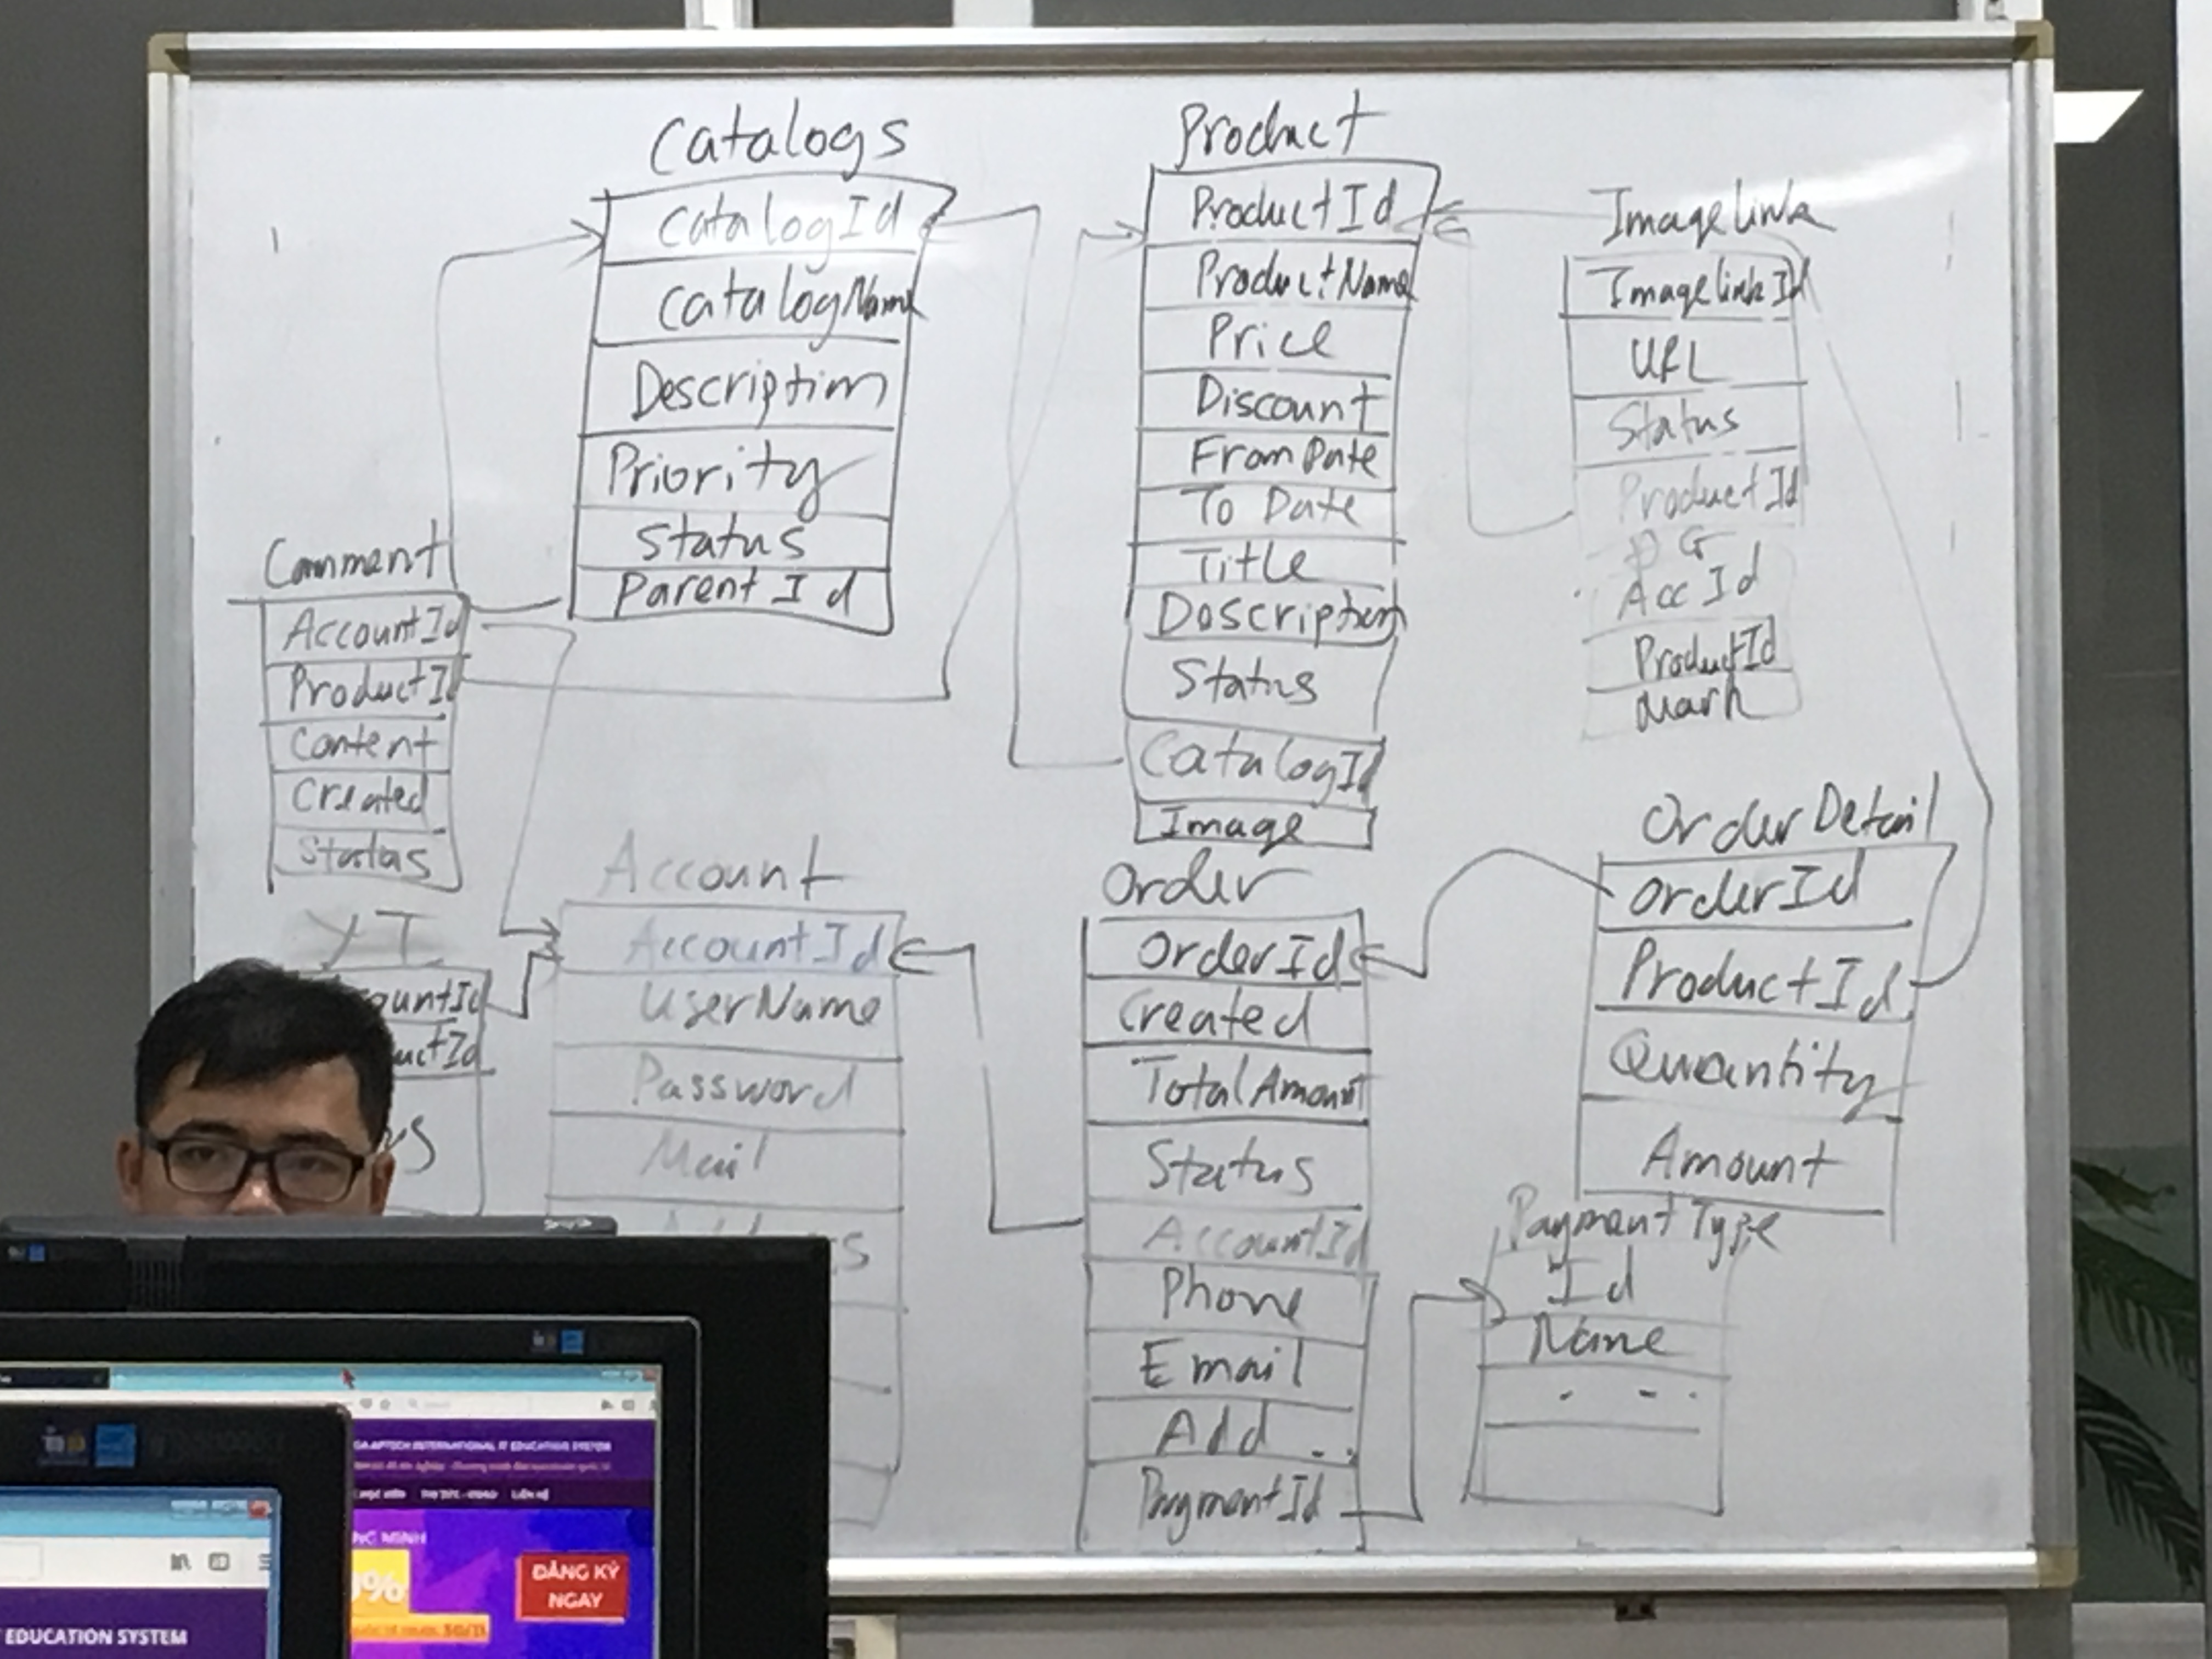 Catalogs
CatalogId
CatalogName
Description
Priority
Status
Parent Id
Product
ProductId
ProductName
Price
Discount
From Date
To Date
Title
Doscription
Status
CatalogId
Image
Imagelink
ImagelinkId
URL
Status
ProductId
ĐG
AccId
ProductId
Mark
Comment
AccountId
ProductId
Content
Created
Status
YT
ountId
uctId
us
Account
AccountId
UserName
Password
Mail
s
Order
OrderId
Created
TotalAmount
Status
AccountId
Phone
Email
Add ...
PaymentId
OrderDetail
OrderId
ProductId
Quantity
Amount
PaymentType
Id
Name
- - .
APTECH INTERNATIONAL IT EDUCATION SYSTEM
LIÊN HỆ
NG MINH
0%
ĐĂNG KÝ
NGAY
EDUCATION SYSTEM